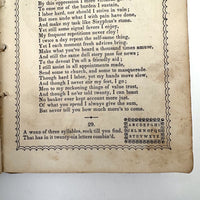 By this oppression I more
To ease me of the burden I sustain,
I labor hard, or should I strive in vain;
But men undo what I with pain have done,
And make my task like Sysyphus's stone.
Yet still some signal favors I enjoy,
My frequent repetitions never cloy!
I twice a day repeat the self-same thing,
Yet I each moment fresh advices bring.
Make what you've heard a thousand times amuse,
And still the same dull story pass for news;
To the devout I'm oft a friendly aid;
I still assist in all appointments made,
Send some to church, and some to masquerade.
Though hard I labor, yet my hands move slow,
And though I ne'er stir yet, on I go;
Men to my reckoning things of value trust,
And though I ne'er tell twenty, I can boast
No banker ever kept account more just.
Of what you spend I always give the sum,
But never tell you how much more's to come.
29.
A word of three syllables, seek till you find,
That has in it twenty-six letters combin'd.
ABCDEFGHI
JKLMNOPQ
RSTUVWXYZ